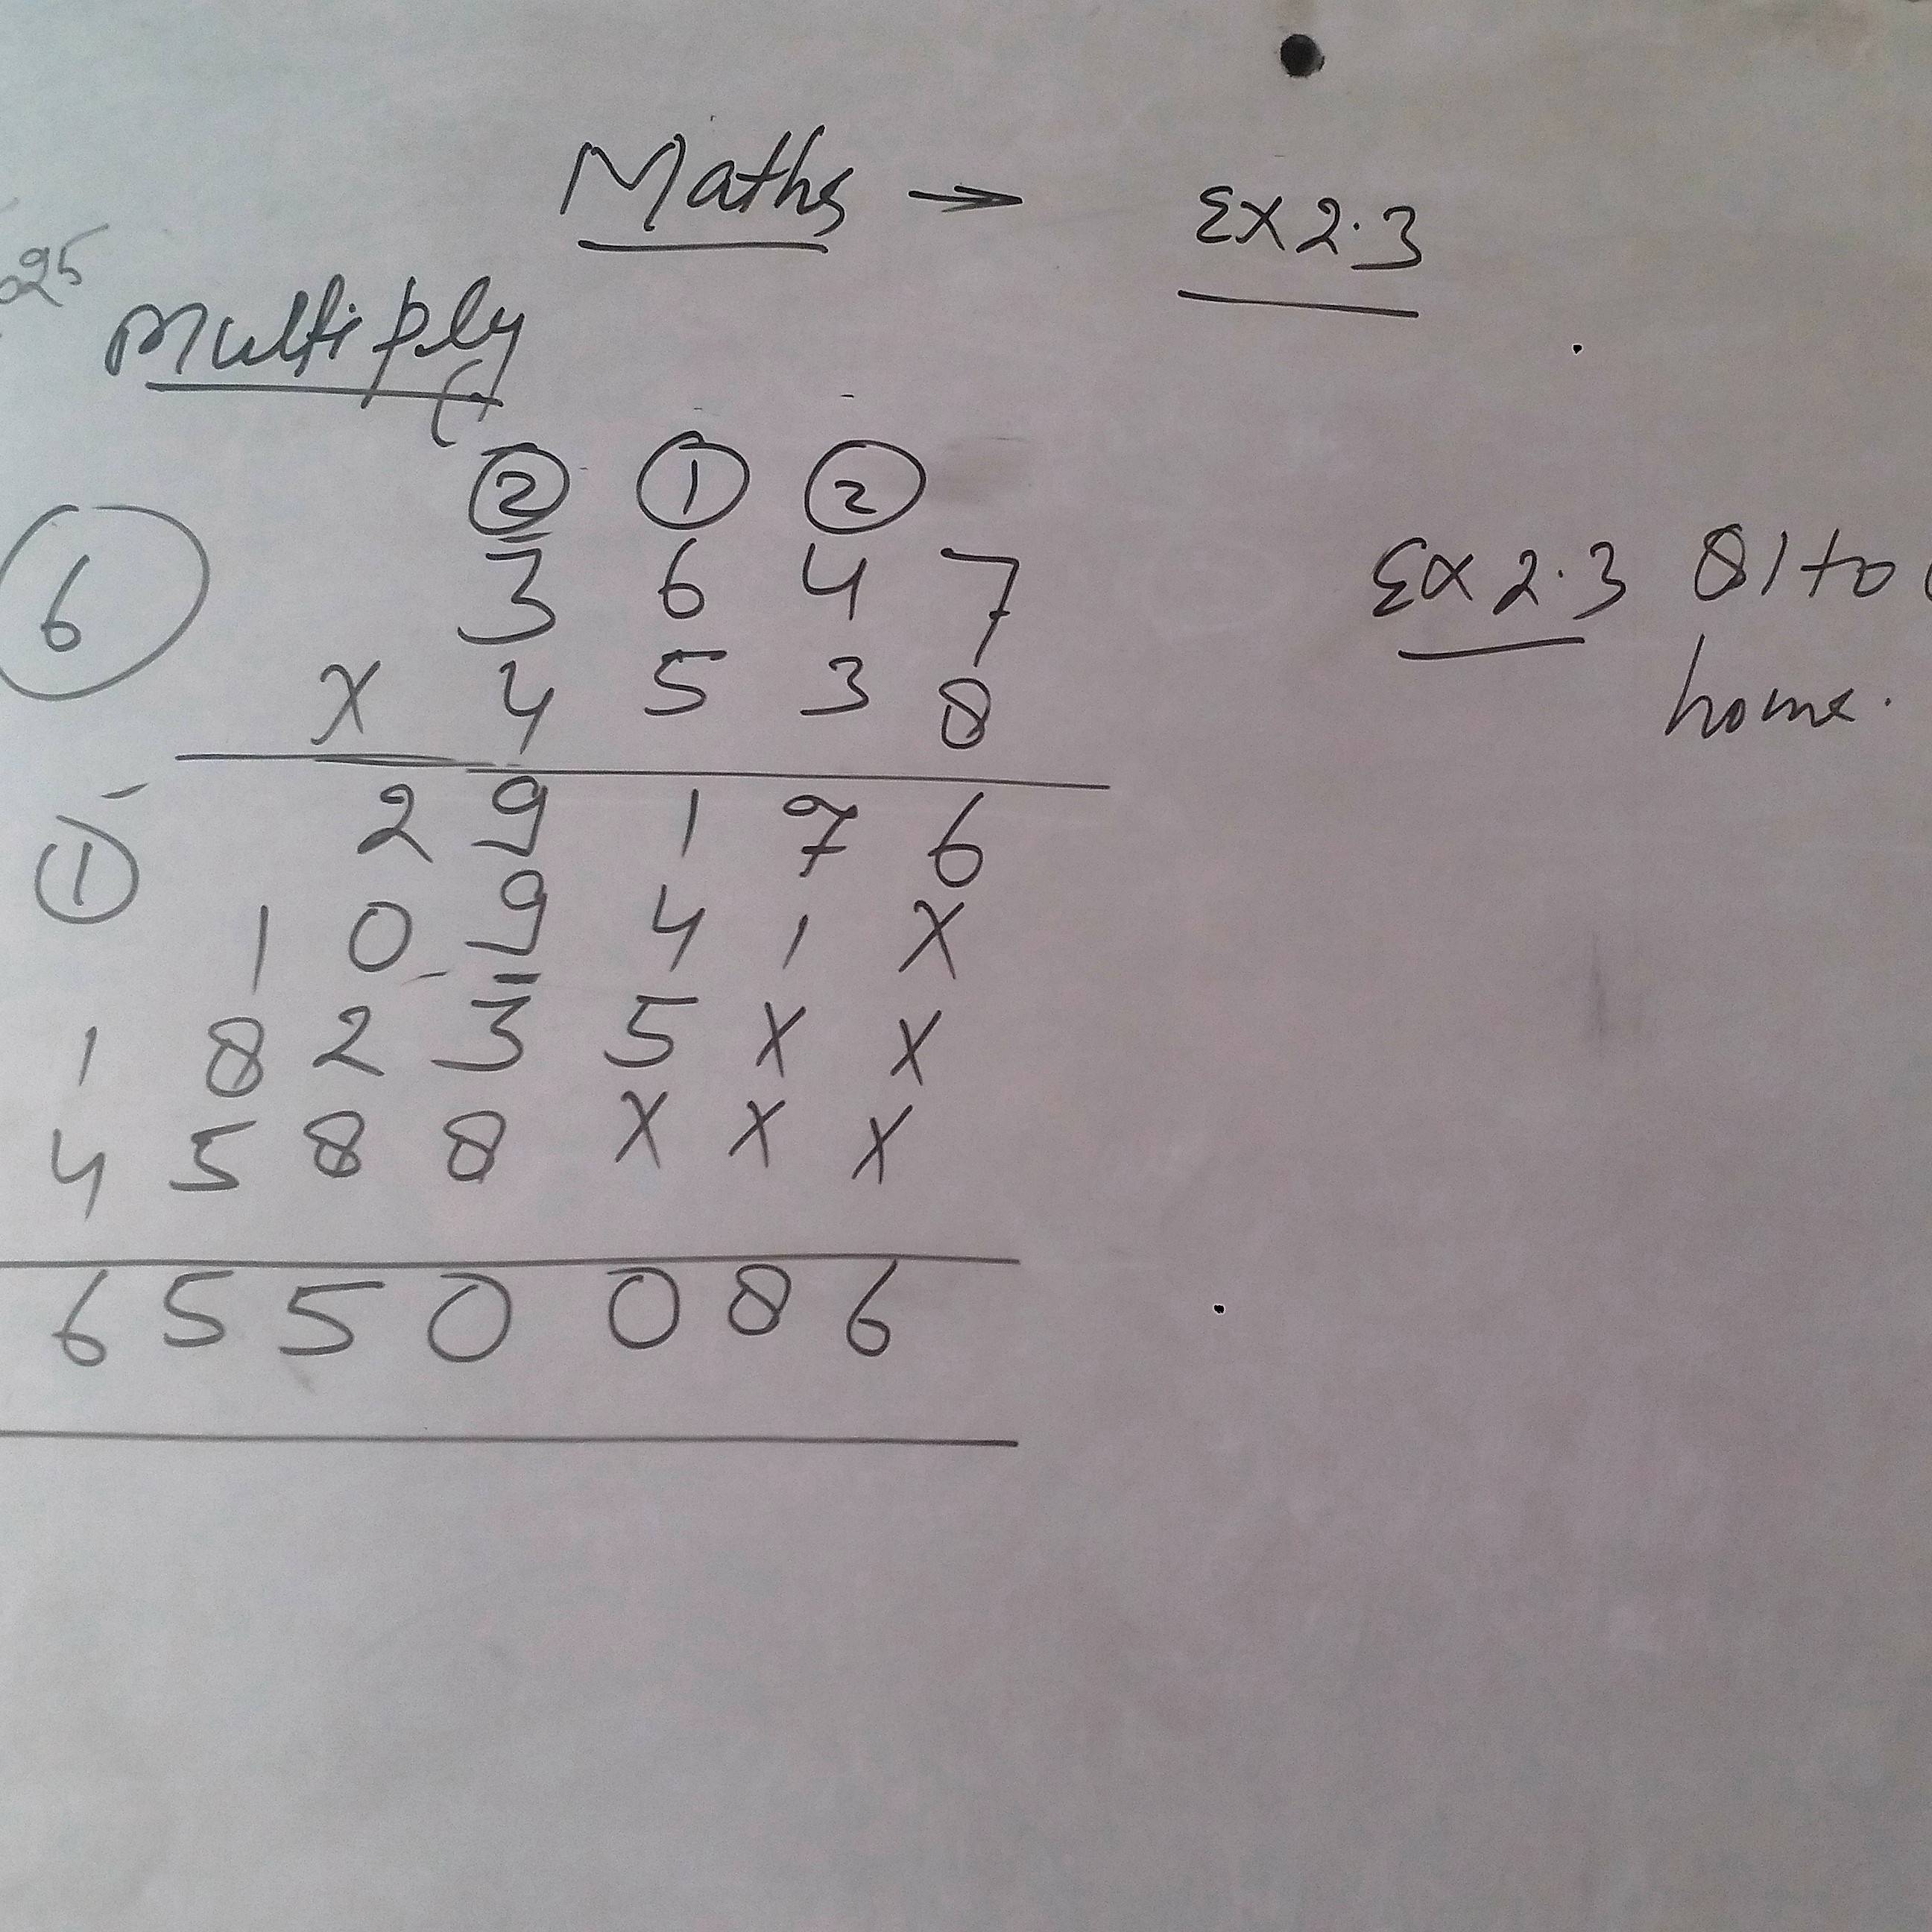 Maths → Ex 2.3
Multiply
② ① ②
⑥ 3 6 4 7
x 4 5 3 8
① 2 9 1 7 6
1 0 9 4 1 x
1 8 2 3 5 x x
4 5 8 8 x x x
6 5 5 0 0 8 6
Ex 2.3 Q1 to
home.